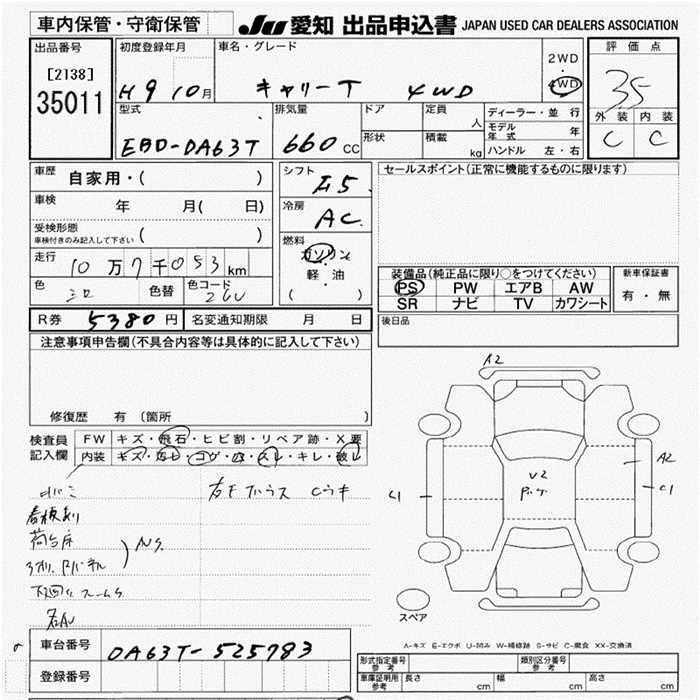 車内保管・守衛保管
JU 愛知 出品申込書 JAPAN USED CAR DEALERS ASSOCIATION
出品番号
[2138]
35011
初度登録年月
H9 10月
車名・グレード
キャリーT 4WD
2WD
・
4WD
評価点
35
外装 内装
C C
型式
EBD-DA63T
排気量
660 CC
ドア
形状
定員
人
積載
kg
ディーラー・並行
モデル年式 年
ハンドル 左・右
車歴
自家用・( )
車検
年 月( 日)
受検形態
車検付きのみ記入して下さい ( )
走行
10万7千053km
色
色替
色コード
26U
シフト
F5
冷房
AC
燃料
ガソリン
・
軽油
( )
セールスポイント(正常に機能するものに限ります)
装備品(純正品に限り○をつけてください)
PS PW エアB AW
SR ナビ TV カワシート
新車保証書
有・無
後日品
R券 5380円 名変通知期限 月 日
注意事項申告欄(不具合内容等は具体的に記入して下さい)
修復歴 有(箇所 )
検査員記入欄
FW キズ・飛石・ヒビ割・リペア跡・X要
内装 キズ・汚レ・コゲ・穴・スレ・キレ・破レ
看板あり
荷台床
NG
A2
C1
V2
A2
C1
スペア
A-キズ E-エクボ U-凹み W-補修跡 S-サビ C-腐食 XX-交換済
車台番号 DA63T-525783
登録番号
形式指定番号
参考
類別区分番号
参考
車庫証明用
参考
長さ cm
幅 cm
高さ cm